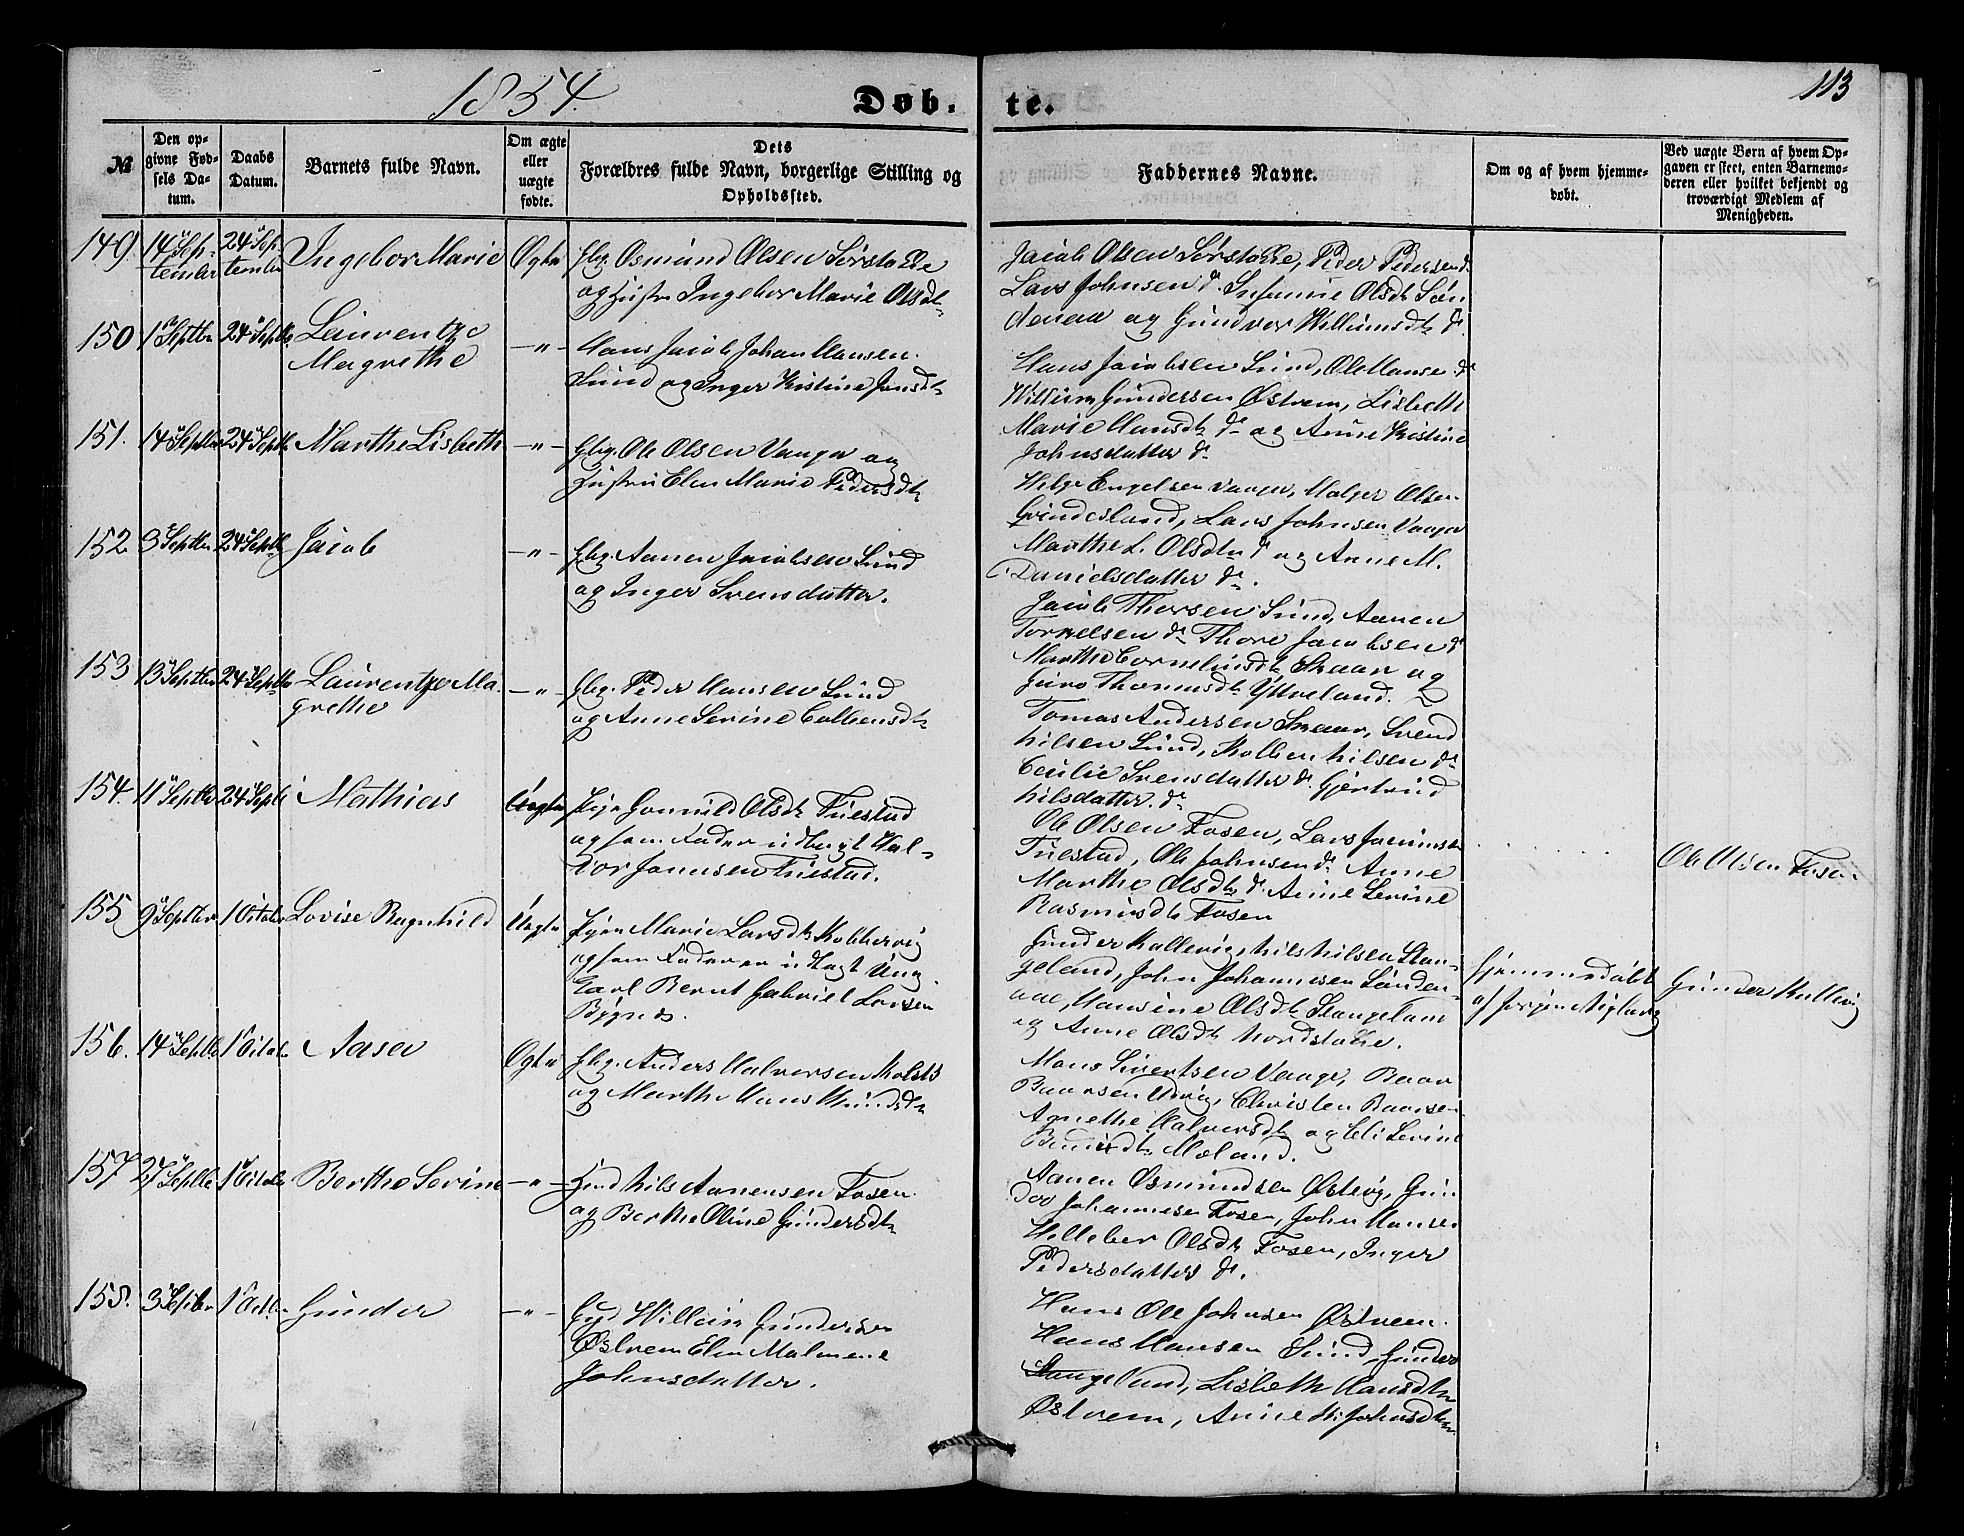 1854.
Døb.
te.
113
№
Den op-
givne Fød-
sels Da-
tum.
Daabs
Datum.
Barnets fulde Navn.
Om ægte
eller
uægte
fødte.
Dets
Forældres fulde Navn, borgerlige Stilling og
Opholdssted.
Faddernes Navne.
Om og af hvem hjemme-
døbt.
Ved uægte Børn af hvem Op-
gaven er skeet, enten Barnemo-
deren eller hvilket bekjendt og
troværdigt Medlem af
Menigheden.
149 14 Sep-
tember
24 Sep-
tember
Ingebor Marie
Ægte
Osmund Olsen Sørstokke
og Hustru Ingebor Marie Olsdt
Jacob Olsen Sørstokke, Peder Pedersen do
Lars Johnsen do Olsdt
og Gundvor Williumsdt do
150 1 Septbr 24 Septbr
Laurentze
Magrethe
-"-
Hans Jacob Johan Hansen
Sund og Inger Kistine Jonsdt
Hans Jacobsen Sund, Ole Hansen do
Willium Gundersen Østrem, Lisbeth
Marie Hansdt do og Anne Kistine
Johnsdatter do
151. 14 Septbr 24 Septb Marthe Lisbeth -"-
Gbr. Ole Olsen Vaage og
Hustru Elen Marie Pedersdt
Helge Engelsen Vaage, Holger Olsen
Grindesland, Lars Johnsen Vaage
Marthe L. Olsdtr do og Anne M.
Danielsdatter do.
152. 3 Septbr 24 Septb Jacob -"-
Gbr. Aanen Jacobsen Sund
og Inger Svensdatter.
Jacob Thorsen Sund, Aanen
Torkelsen do Thore Jacobsen do
Marthe Corneliusdt Skaar og
Thomasdt Ytreland.
153 13 Septbr 24 Septbr
Laurentze Ma-
grethe
-"-
Gbr. Peder Hansen Sund
og Anne Serine Colbensdt
Tomas Andersen Skaar, Svend
Nilsen Sund, Kolben Nilsen do
Cecilie Svensdatter do Gjertrud
Nilsdatter do
154. 11 Septbr 24 Septb Mathias Uægte
Pige Gonnild Olsdt Tuestad
og som Fader udlagt Hal-
vor Jonnsen Tuestad.
Ole Olsen Fosen, Lars
Tuestad, Ole Johnsen do Anne
Marthe Olsdt do Anne Serine
Rasmusdt Fosen
Ole Olsen Fosen
155 9 Septbr 1 October Lovise Ragnhild Uægte
Pigen Marie Larsdt Kolhevig
og som Fader er udlagt Ung
Carl Bernt Gabriel Larsen
Bygnes.
Gunder Kallevig, Nils Nilsen Stan-
geland, John Johannesen Sønden-
aae, Hansine Olsdt Stangeland
og Anne Olsdt Nordstokke.
Hjemmedøbt
af
Gunder Kallevig
156. 14 Septb 1 Octob Aasa Ægte
Gbr. Anders Halvorsen Kolstø
og Marthe
Mons Sivertsen Vaage, Baar
Baarsen Udvig, Christen Baarsen
Agnethe Halvorsdt og Eli Serine
Moland.
157 27 Septb 1 Octob Berthe Serine -"-
Nils Aanensen Fosen.
og Berthe Oline Gundersdt
Aanen Osmundsen Østvig, Gun-
der Johannesen Fosen, John Hansen
Helleber Olsdt Fosen, Inger
Pedersdatter do.
158. 3 Septbr 1 Octb. Gunder -"-
Willum Gundersen
Østrem Elen Malmene
Johnsdatter.
Hans Ole Johnsen Østreen.
Hans Hansen Sund, Gunder
Stangelund, Lisbeth Hansdtr
Østrem, Anne M. Johnsdtr